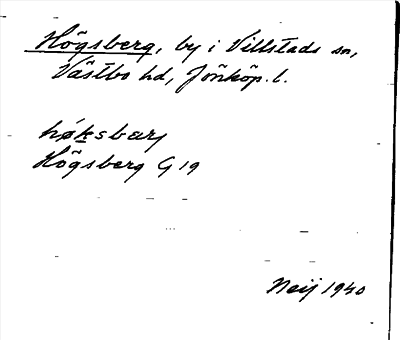 Högsberg, by i Villstads sn,
Västbo hd, Jönköp. l.
høksbarj
Högsberg G 19
Neij 1940